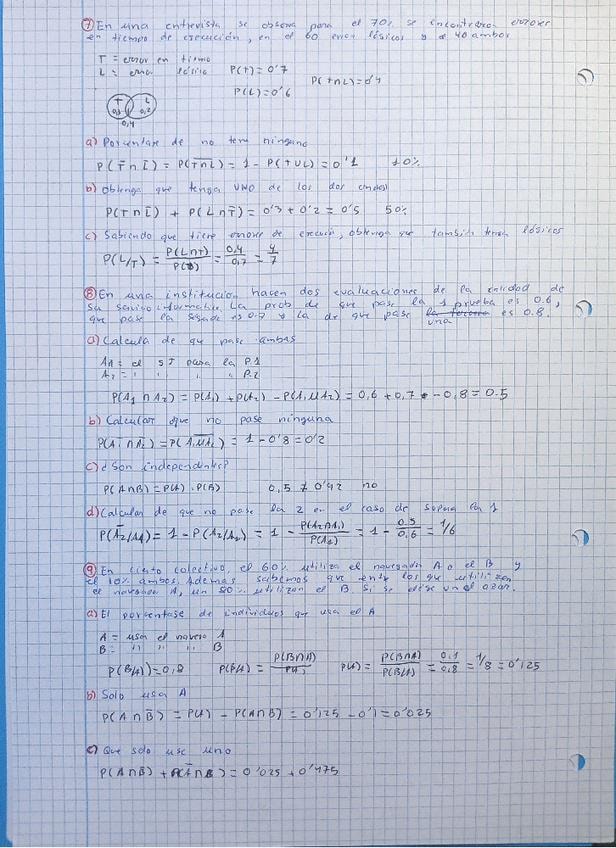 ⑦ En una entrevista se observa para el 70% se encontraron errores
en tiempo de ejecución, en el 60 error lógicos y 40 ambos
T = error en tiempo
L = error lógico P(T)=0'7
P(L)=0'6 P(T∩L)=0'4
T L
0,3 0,2
0,4
a) Porcentaje de no tener ninguno
P(T̄∩L̄) = = 1 - P(T∪L) = 0'1 10%
b) Obtenga que tenga UNO de los dos
P(T∩L̄) + P(L∩T̄) = 0'3 + 0'2 = 0'5 50%
c) Sabiendo que tiene error de ejecución, obtenga que también tenga lógicos
P(L/T) = P(L∩T) = 0,4/0,7 = 4/7
⑧ En una institución hacen dos evaluaciones de la calidad de
su servicio informático. La prob de que pase la 1 prueba es 0.6,
que pase la segunda es 0.7 y la de que pase una es 0.8.
a) Calcula de que pase ambas
A1 = el SI pasa la P.1
A2 = " " " " P.2
P(A1∩A2) = P(A1) + P(A2) - P(A1∪A2) = 0,6 + 0,7 - 0,8 = 0.5
b) Calcular que no pase ninguna
= 1 - 0'8 = 0'2
c) ¿Son independientes?
P(A∩B) = P(A) · P(B) 0,5 ≠ 0'42 no
d) Calcular de que no pase la 2 en el caso de supera la 1
P(Ā2/A1) = 1 - P(A2/A1) = 1 - P(A2∩A1)/P(A1) = 1 - 0.5/0.6 = 1/6
⑨ En cierto colectivo, el 60% utiliza el navegador A o el B y
el 10% ambos. Además sabemos que entre los que utilizan
el navegador A, un 80% utilizan el B. Si se elige un al azar.
a) El porcentaje de individuos que usa el A
A = usa el A
B = " " " B
P(B/A) = 0,8 P(B/A) = P(B∩A)/P(A) P(A) = P(B∩A)/P(B/A) = 0,1/0,8 = 1/8 = 0'125
b) Solo usa A
P(A∩B̄) = P(A) - P(A∩B) = 0'125 - 0'1 = 0'025
c) Que solo use uno
P(A∩B̄) + P(Ā∩B) = 0'025 + 0'475